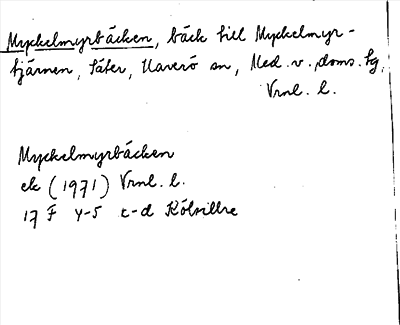 Myckelmyrbäcken, bäck till Myckelmyr-
tjärnen, Säter, Haverö sn, Med. v. doms. tg,
Vrnl. l.
Myckelmyrbäcken
ek (1971) Vrnl. l.
17 F 4-5 c-d Kölsillre